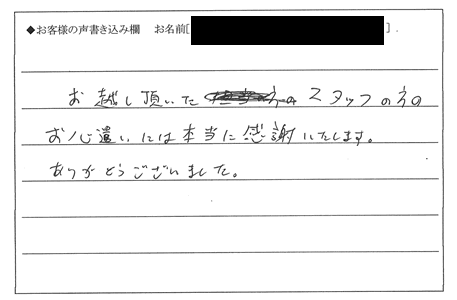 ◆お客様の声書き込み欄 お名前[ ].
お越し頂いた スタッフの方の
お心遣いには本当に感謝いたします。
ありがとうございました。